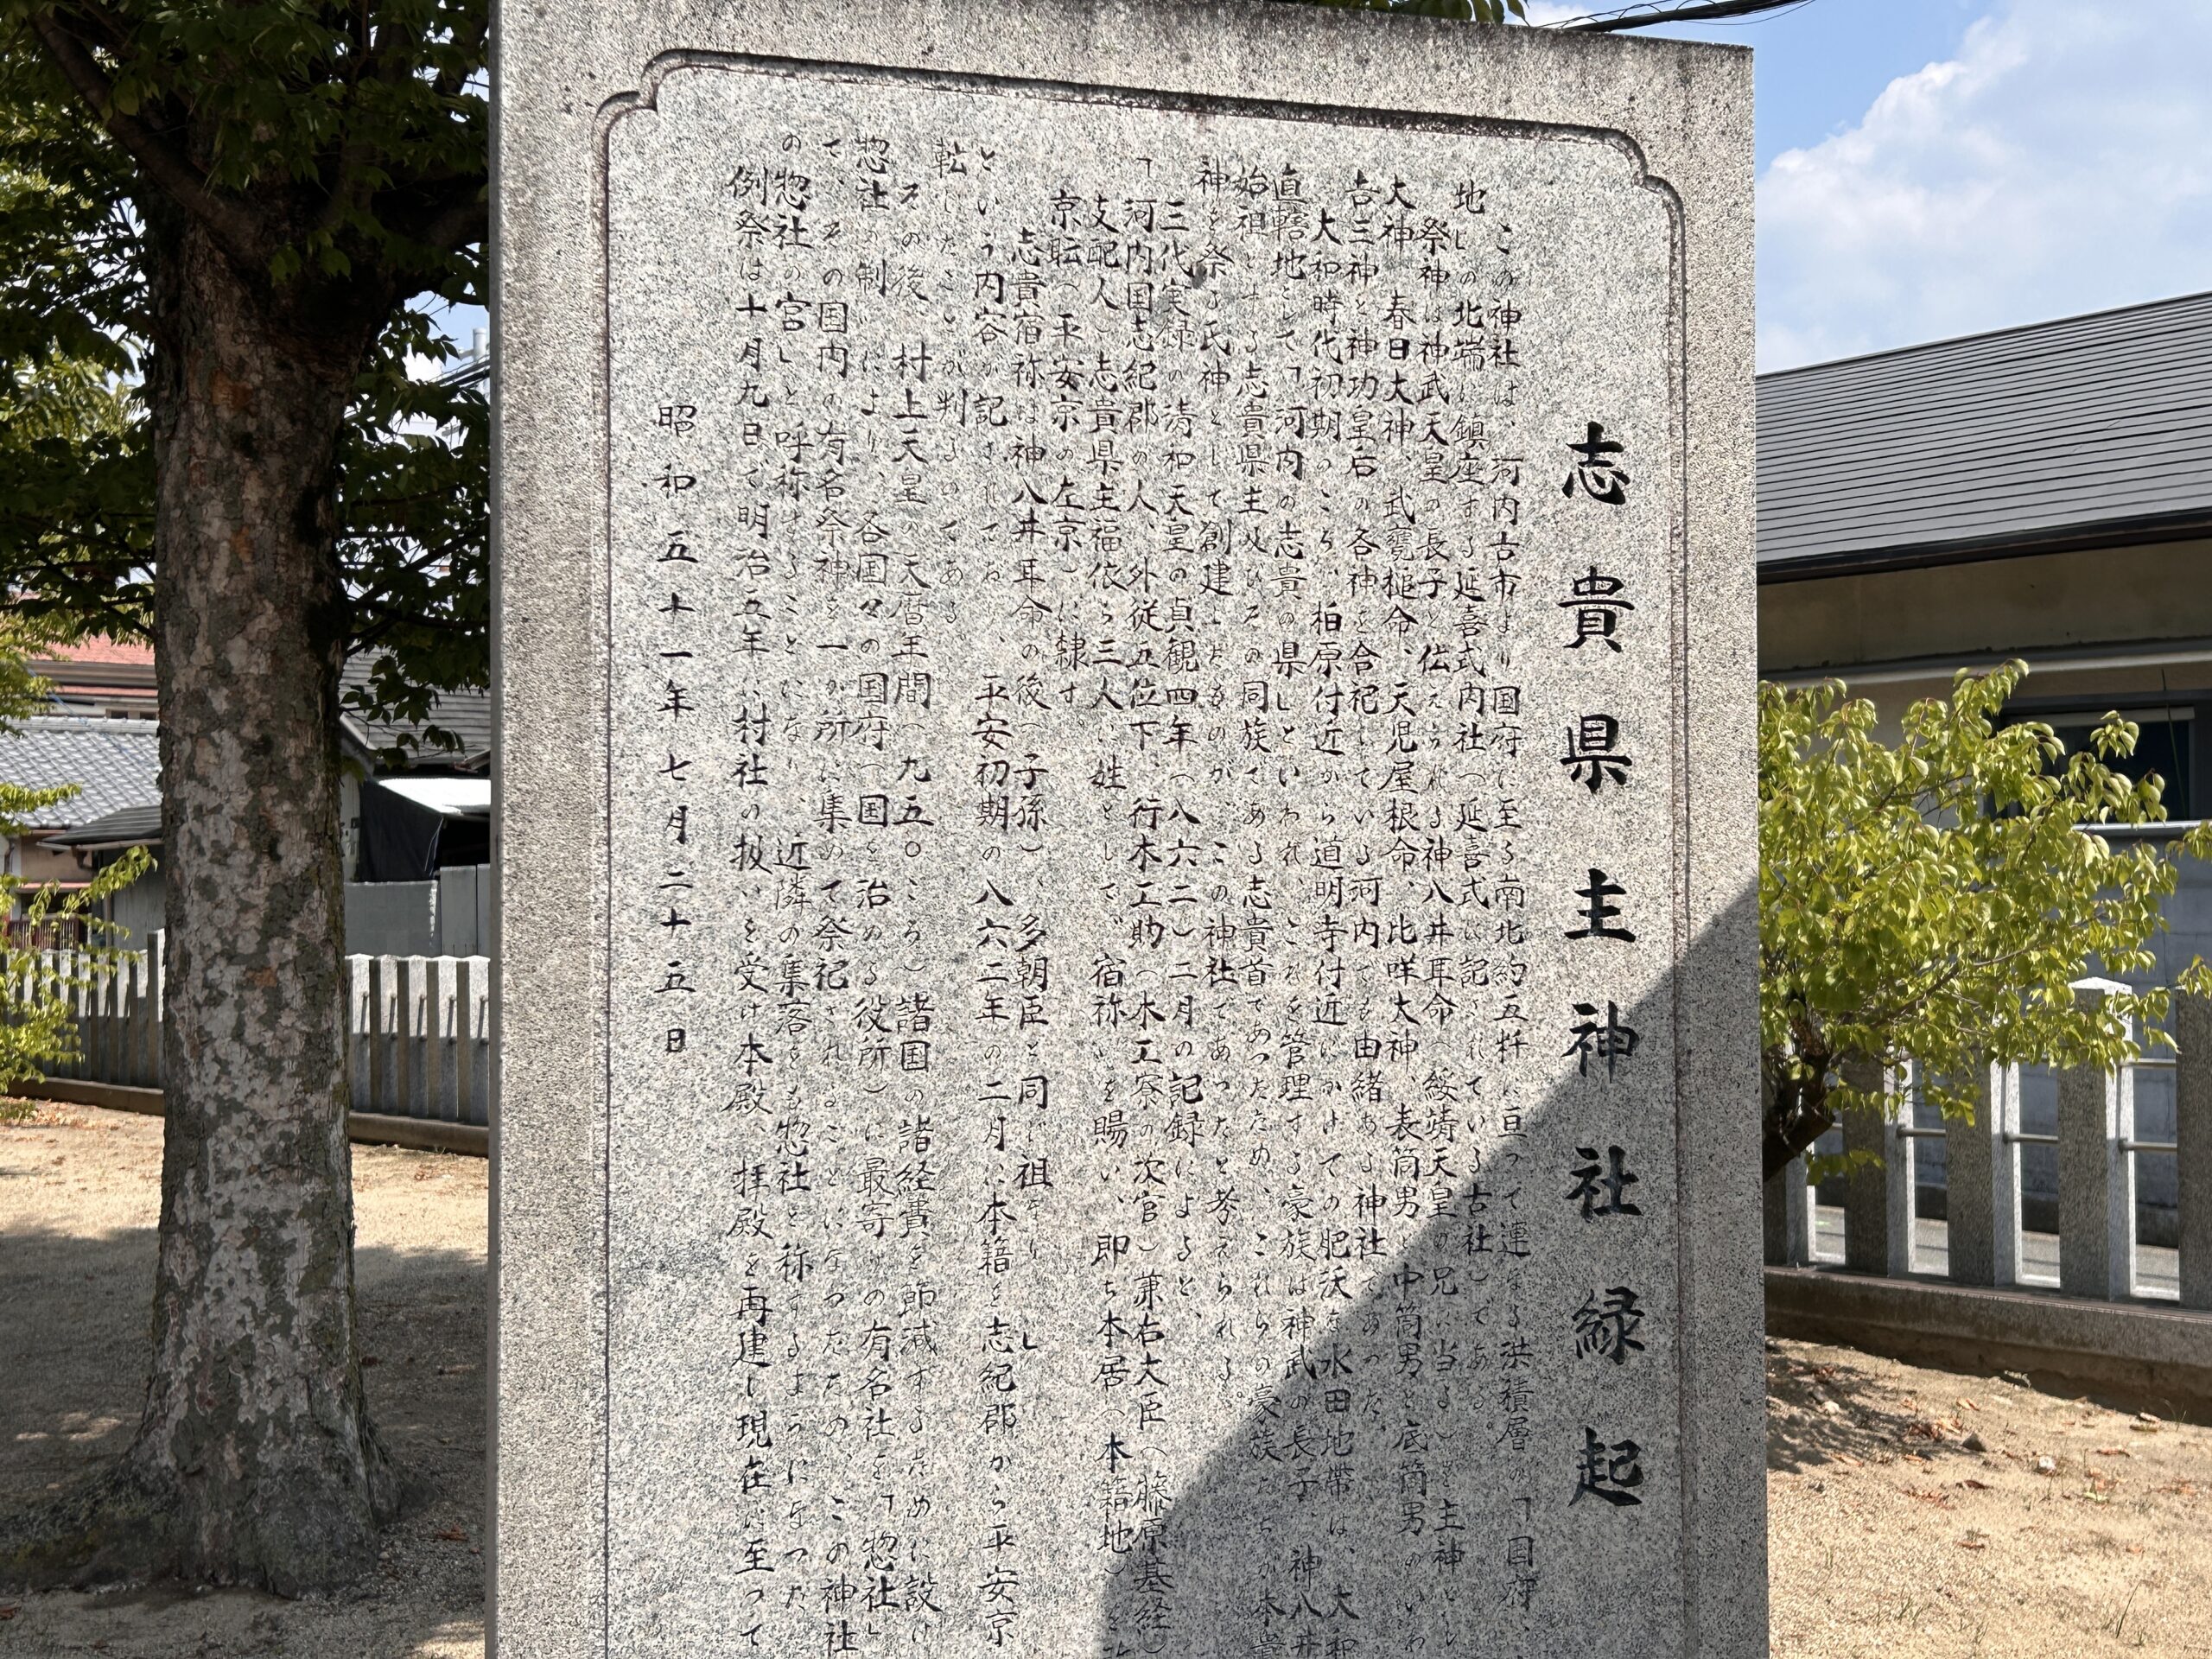 志貴県主神社縁起
この神社は、河内古市より国府に至る南北約五粁に亘って連なる洪積層の「国府
地」の北端に鎮座する延喜式内社(延喜式に記されている古社)である。
祭神は神武天皇の長子と伝えられる神八井耳命(綏靖天皇の兄に当る)を主神とし
大神、春日大神、武甕槌命、天児屋根命、比咩大神、表筒男と中筒男と底筒男のいわ
吉三神と神功皇后の各神を合祀している河内でも由緒ある神社であった。
大和時代初期のころ、柏原付近から道明寺付近にかけての肥沃な水田地帯は、大和
直轄地として「河内の志貴の県」といわれ、これを管理する豪族は神武の長子、神八井
始祖とする志貴県主及びその同族である志貴首であったため、これらの豪族たちが本貫
神を祭る氏神として創建したものが、この神社であったと考えられる。
三代実録の清和天皇の貞観四年(八六二)二月の記録によると、
「河内国志紀郡の人、外従五位下、行木工助(木工寮の次官)兼右大臣(藤原基経)
支配人、志貴県主福依ら三人に姓として"宿祢"を賜い、即ち本居(本籍地)を
京転(平安京の左京)に隷す。
志貴宿祢は神八井耳命の後(子孫)、多朝臣と同じ祖なり」
という内容が記されており、平安初期の八六二年の二月に本籍を志紀郡から平安京
転したことが判るのである。
その後、村上天皇の天暦年間(九五〇ころ)諸国の諸経費を節減するために設け
惣社の制にによリ、各国々の国府(国を治める役所)に最寄りの有名社を「惣社」
て、その国内の有名祭神を一か所に集めて祭祀されることになったため、この神社
の惣社の宮」と呼称することになり、近隣の集落をも惣社と称するようになった
例祭は十月九日で明治五年に村社の扱いを受け本殿、拝殿を再建し現在に至って
昭和五十一年七月二十五日